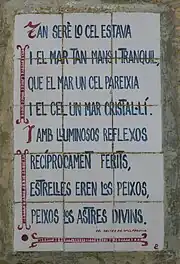 TAN SERÈ LO CEL ESTAVA
I EL MAR TAN MANS I TRANQUIL,
QUE EL MAR UN CEL PAREIXIA
I EL CEL UN MAR CRISTALLÍ.
I AMB LLUMINOSOS REFLEXOS
RECÍPROCAMENT FERITS,
ESTRELLES EREN LOS PEIXOS,
PEIXOS LOS ASTRES DIVINS.